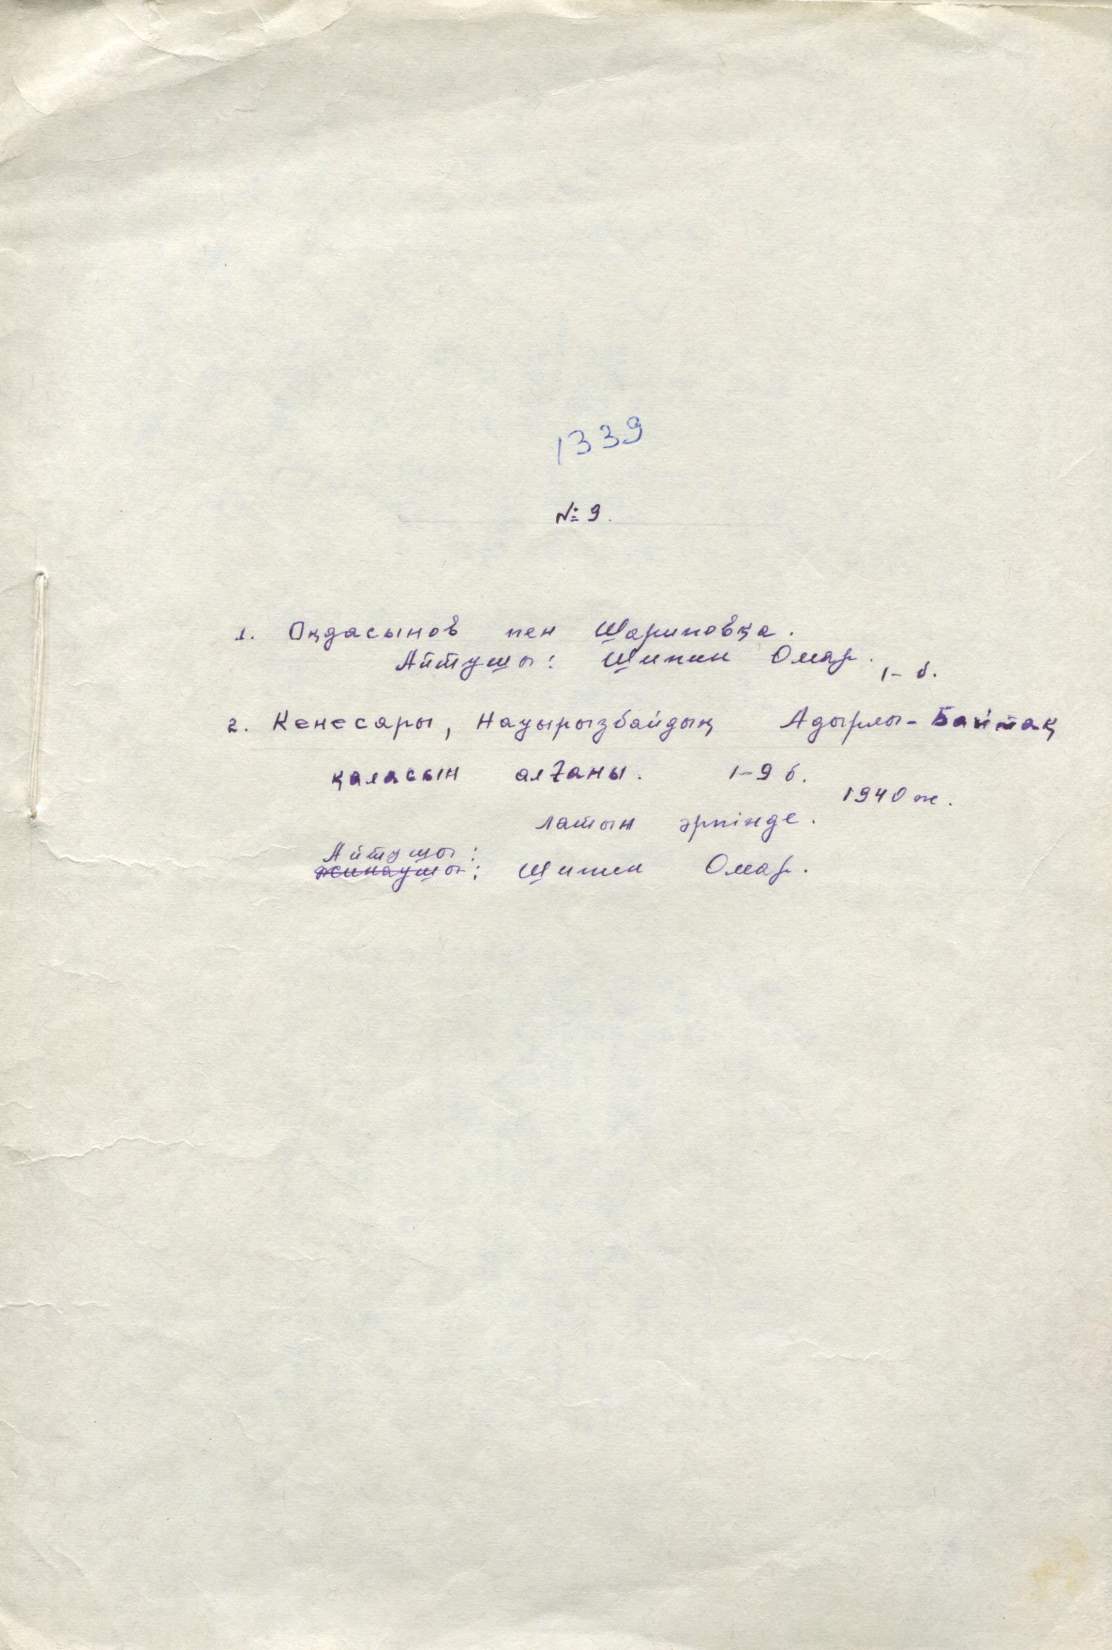 1339
№ 9.
1. Оңдасынов пен Шариповқа.
Айтушы: Шипин Омар.
1- б.
2. Кенесары, Науырызбайдың Адырлы-Байтақ
қаласын алғаны. 1-9 б.
1940 ж.
латын әрпінде.
Айтушы:
жинаушы: Шипин Омар.